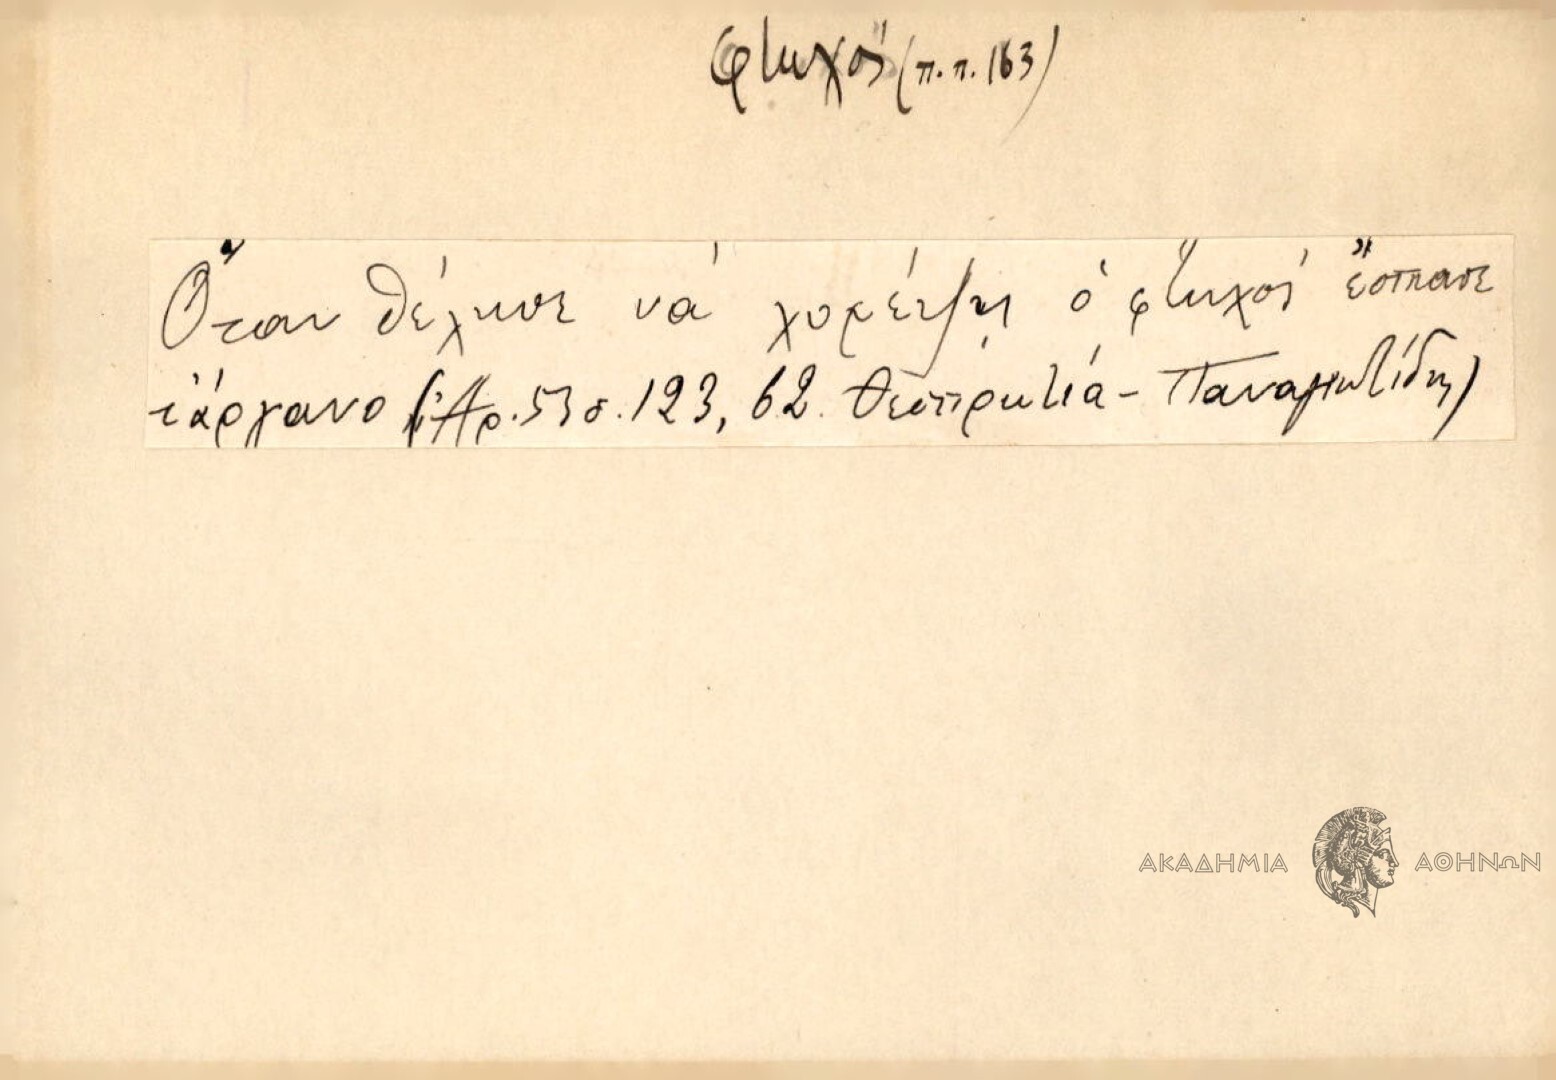 φτωχός (π.π. 163)
Ὅταν θέλησε νά χορέψῃ ὁ φτωχός ἔσπασε
τἄργανο (Ἀρ. 53 σ. 123, 62. Θεσπρωτιά - Παναγιωτίδης)
ΑΚΑΔΗΜΙΑ ΑΘΗΝΩΝ